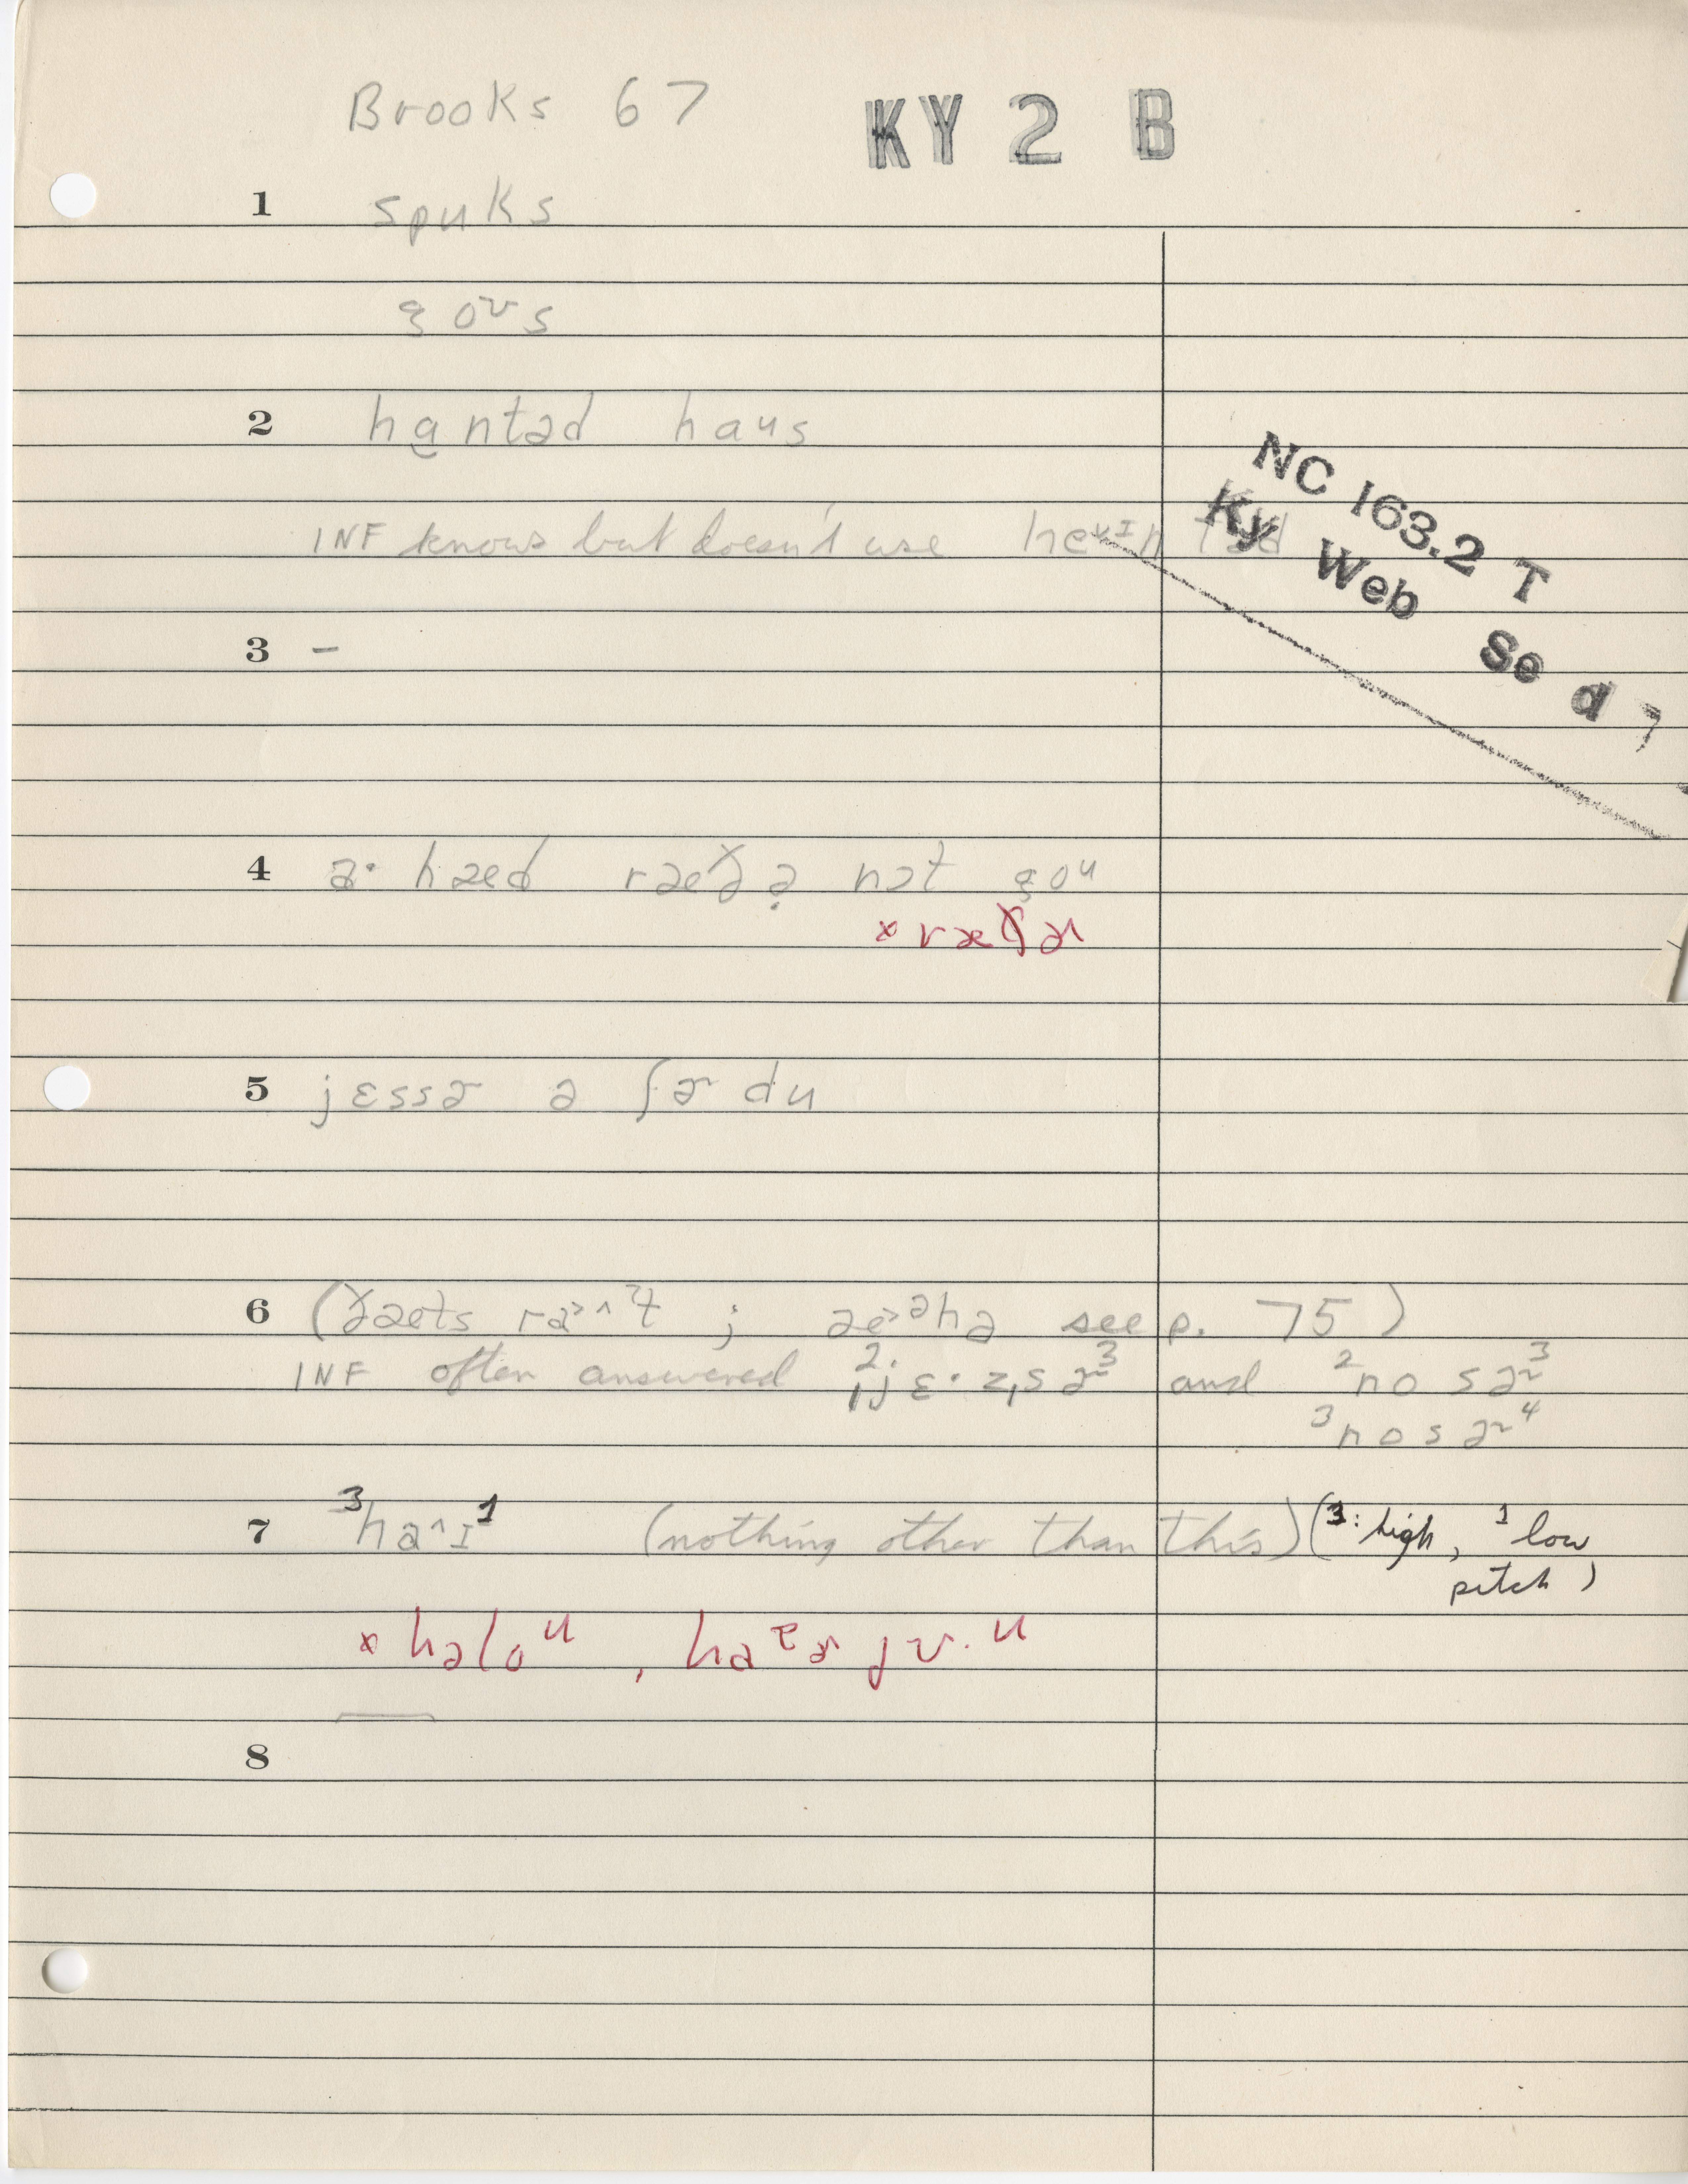 Brooks 67
KY 2 B
1 spuks
goʊs
2 hantəd haus
INF knows but doesn't use
NC 163.2 T
Ky Web Se d 7
3 –
4 a· hæd ræðə nət gou
× ræðɚ
5 jɛssɚ ə ʃɚ du
6 (ðæts see p. 75)
INF often answered ²jɛ·z,sɚ³ and ²no sɚ³
³no sɚ⁴
7 ³ha^ɪ¹ (nothing other than this) (3: high, 1 low
pitch)
× həloᵘ, jʊ·ᵘ
8